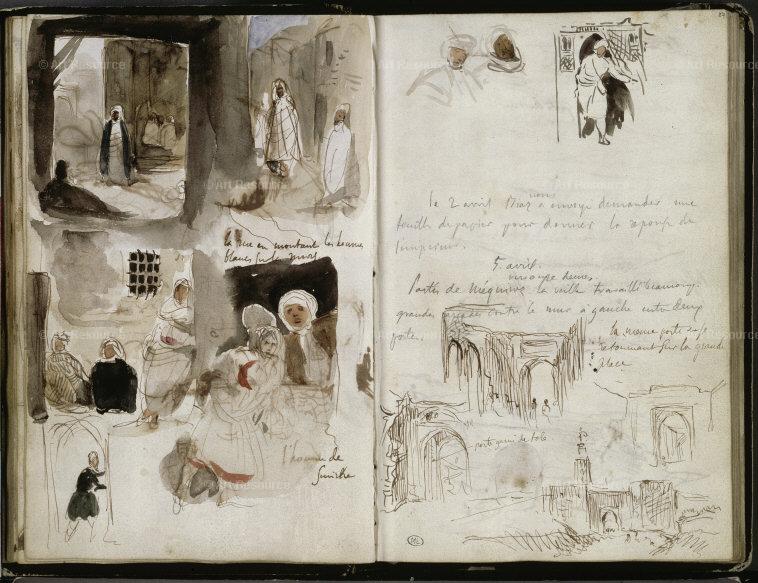 la rue en montant les hommes
blancs sur les murs
l'homme de
le 2 avril Biaz nous a envoyé demander une
feuille de papier pour donner la réponse de
l'empereur.
5 avril.
vers onze heures.
Partis de Méquinez la veille travaillé beaucoup
grandes arcades contre le mur à gauche entre deux
portes
la même porte en se
retournant sur la grande
place
porte garni de tole
ML
© Art Resource